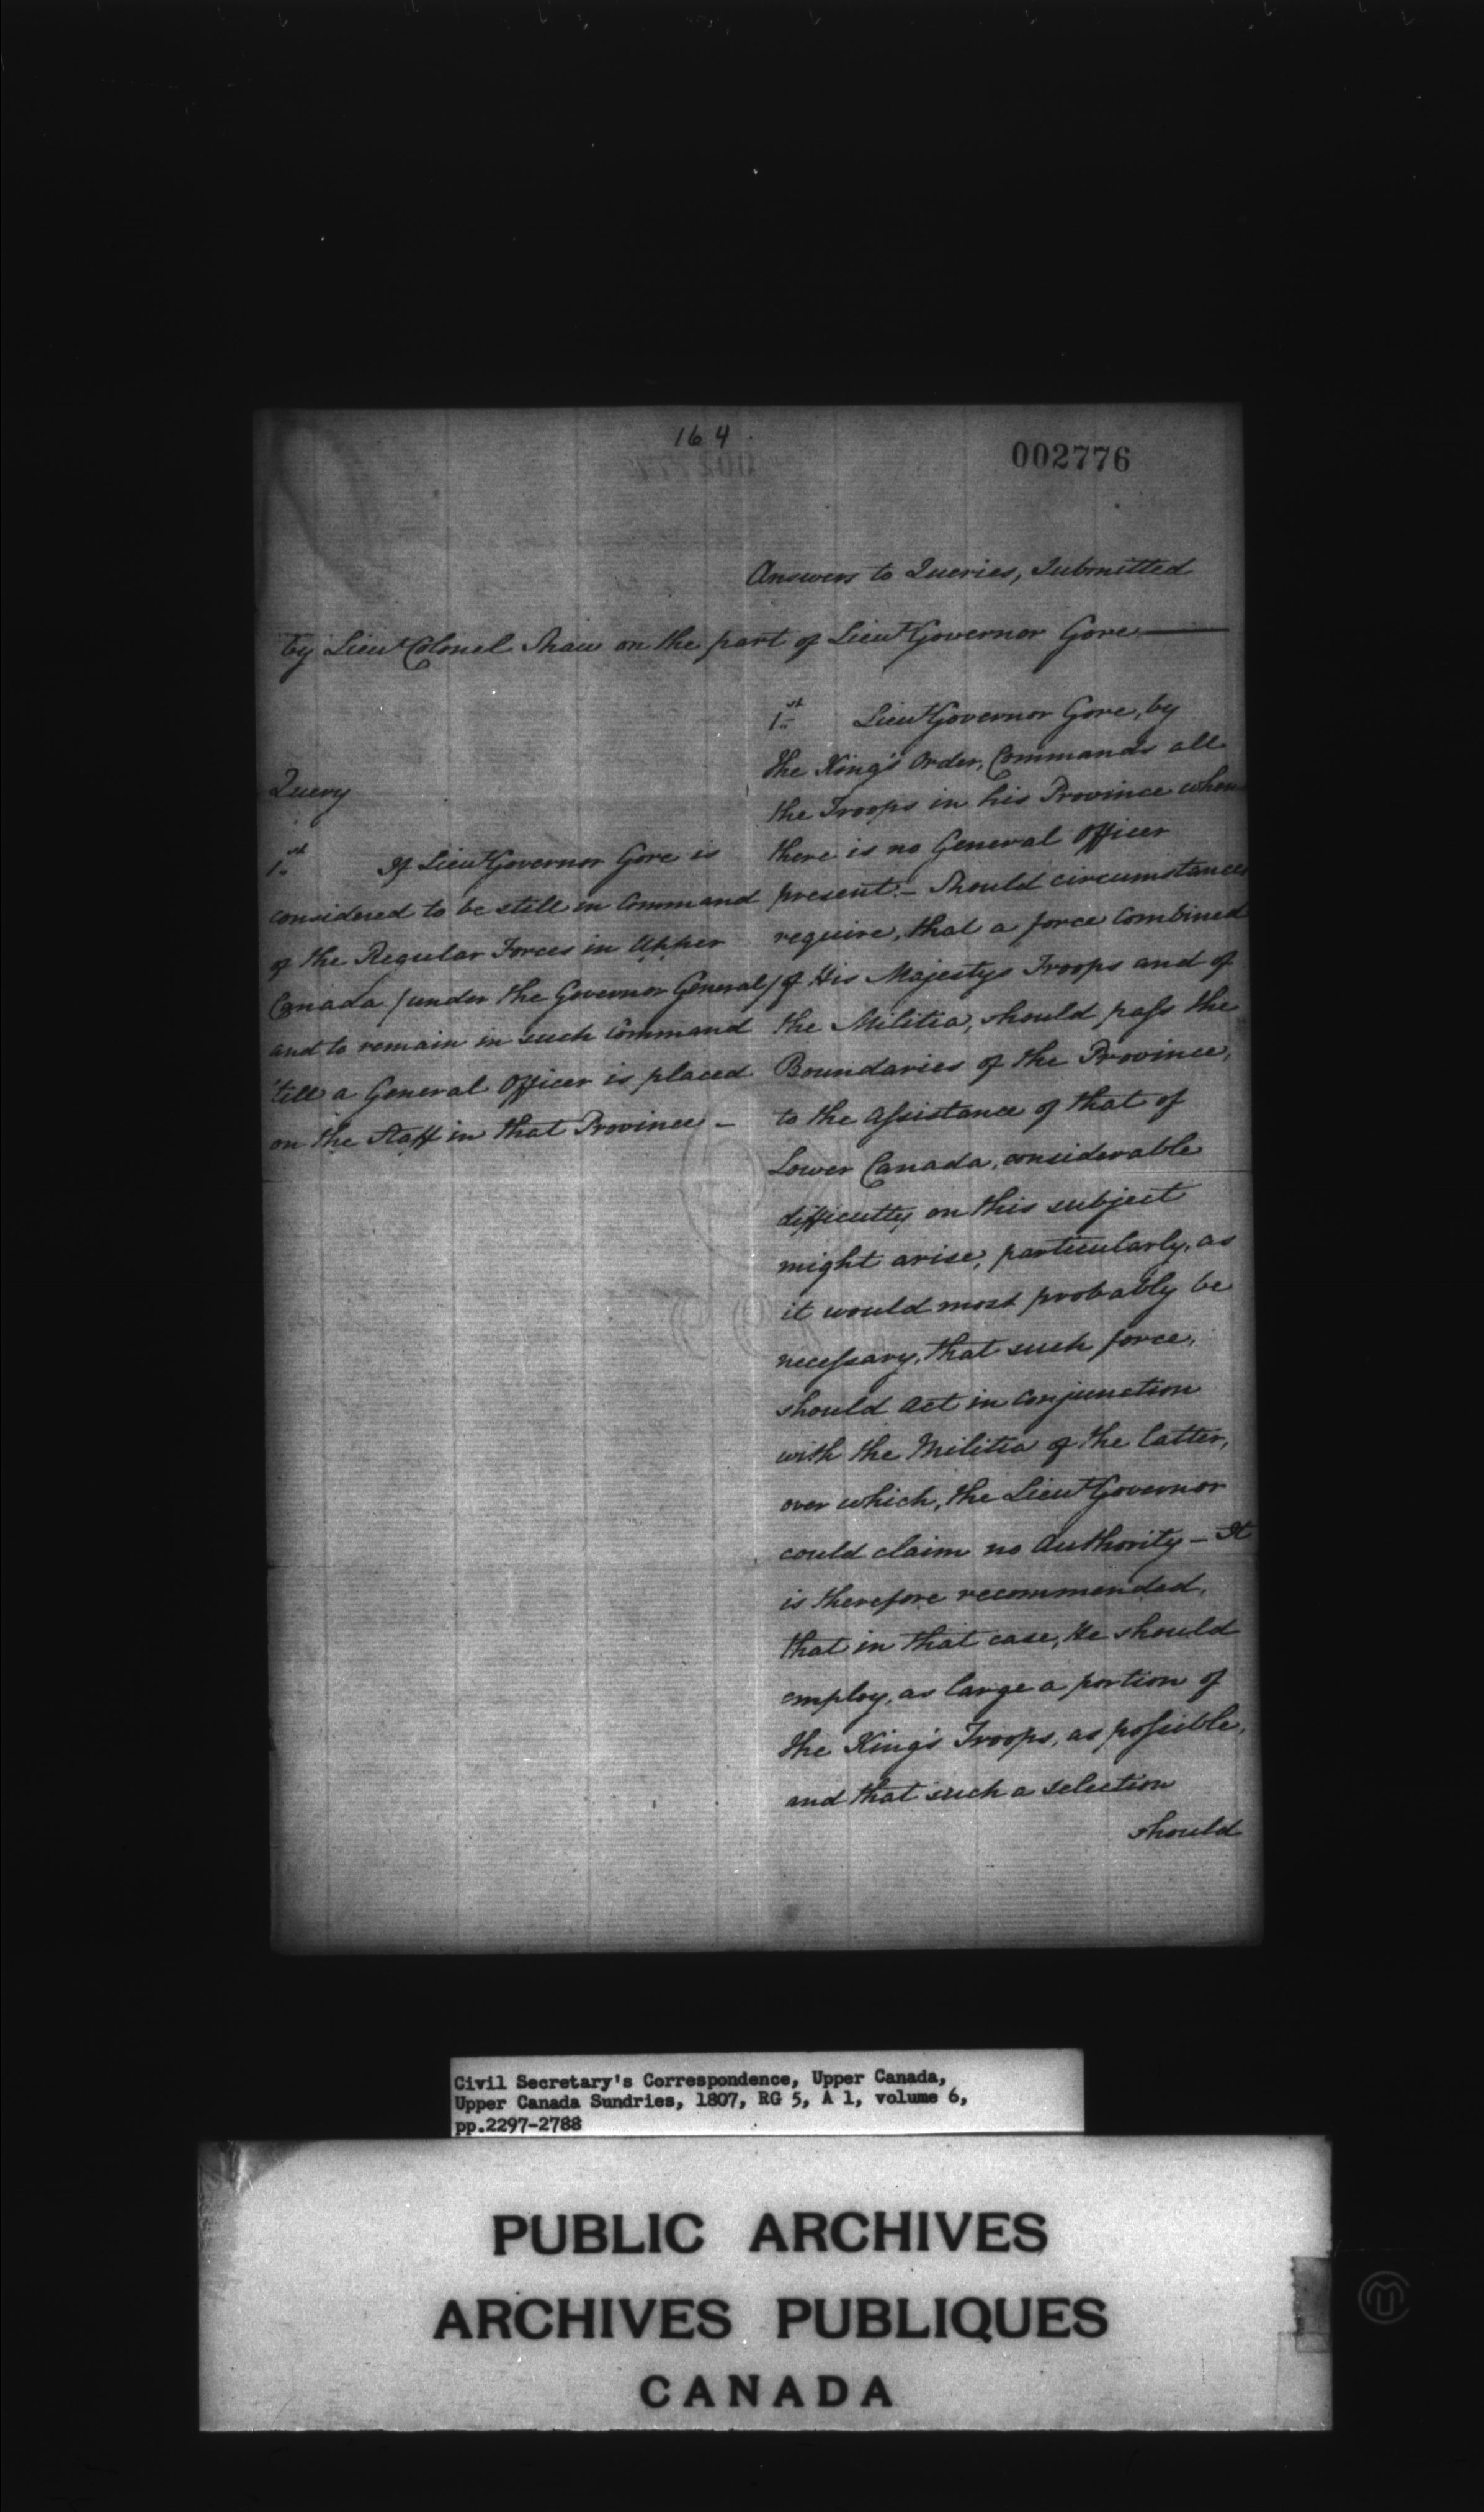 164
002776
Answers to Queries, Submitted
by Lieut Colonel Shaw on the part of Lieut Governor Gore
Query
1st If Lieut Governor Gore is
considered to be still in Command
of the Regular Forces in Upper
Canada / under the Governor General /
and to remain in such Command
'till a General Officer is placed
on the Staff in that Province –
1st Lieut Governor Gore, by
the King's Order, Commands all
the Troops in his Province when
there is no General Officer
present – Should circumstances
require, that a force Combined
of His Majestys Troops and of
the Militia, should pass the
Boundaries of the Province,
to the Assistance of that of
Lower Canada, considerable
difficulty on this subject
might arise, particularly, as
it would most probably be
necessary, that such force,
should act in conjunction
with the Militia of the latter,
over which, the Lieut Governor
could claim no Authority – It
is therefore recommended,
that in that case, He should
employ, as large a portion of
the King's Troops, as possible,
and that such a selection
should
Civil Secretary's Correspondence, Upper Canada,
Upper Canada Sundries, 1807, RG 5, A 1, volume 6,
pp.2297-2788
PUBLIC ARCHIVES
ARCHIVES PUBLIQUES
CANADA